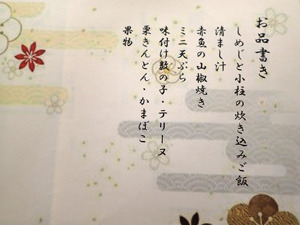 お品書き
しめじと小柱の炊き込みご飯
清まし汁
赤魚の山椒焼き
ミニ天ぷら
味付け数の子・テリーヌ
栗きんとん・かまぼこ
果物